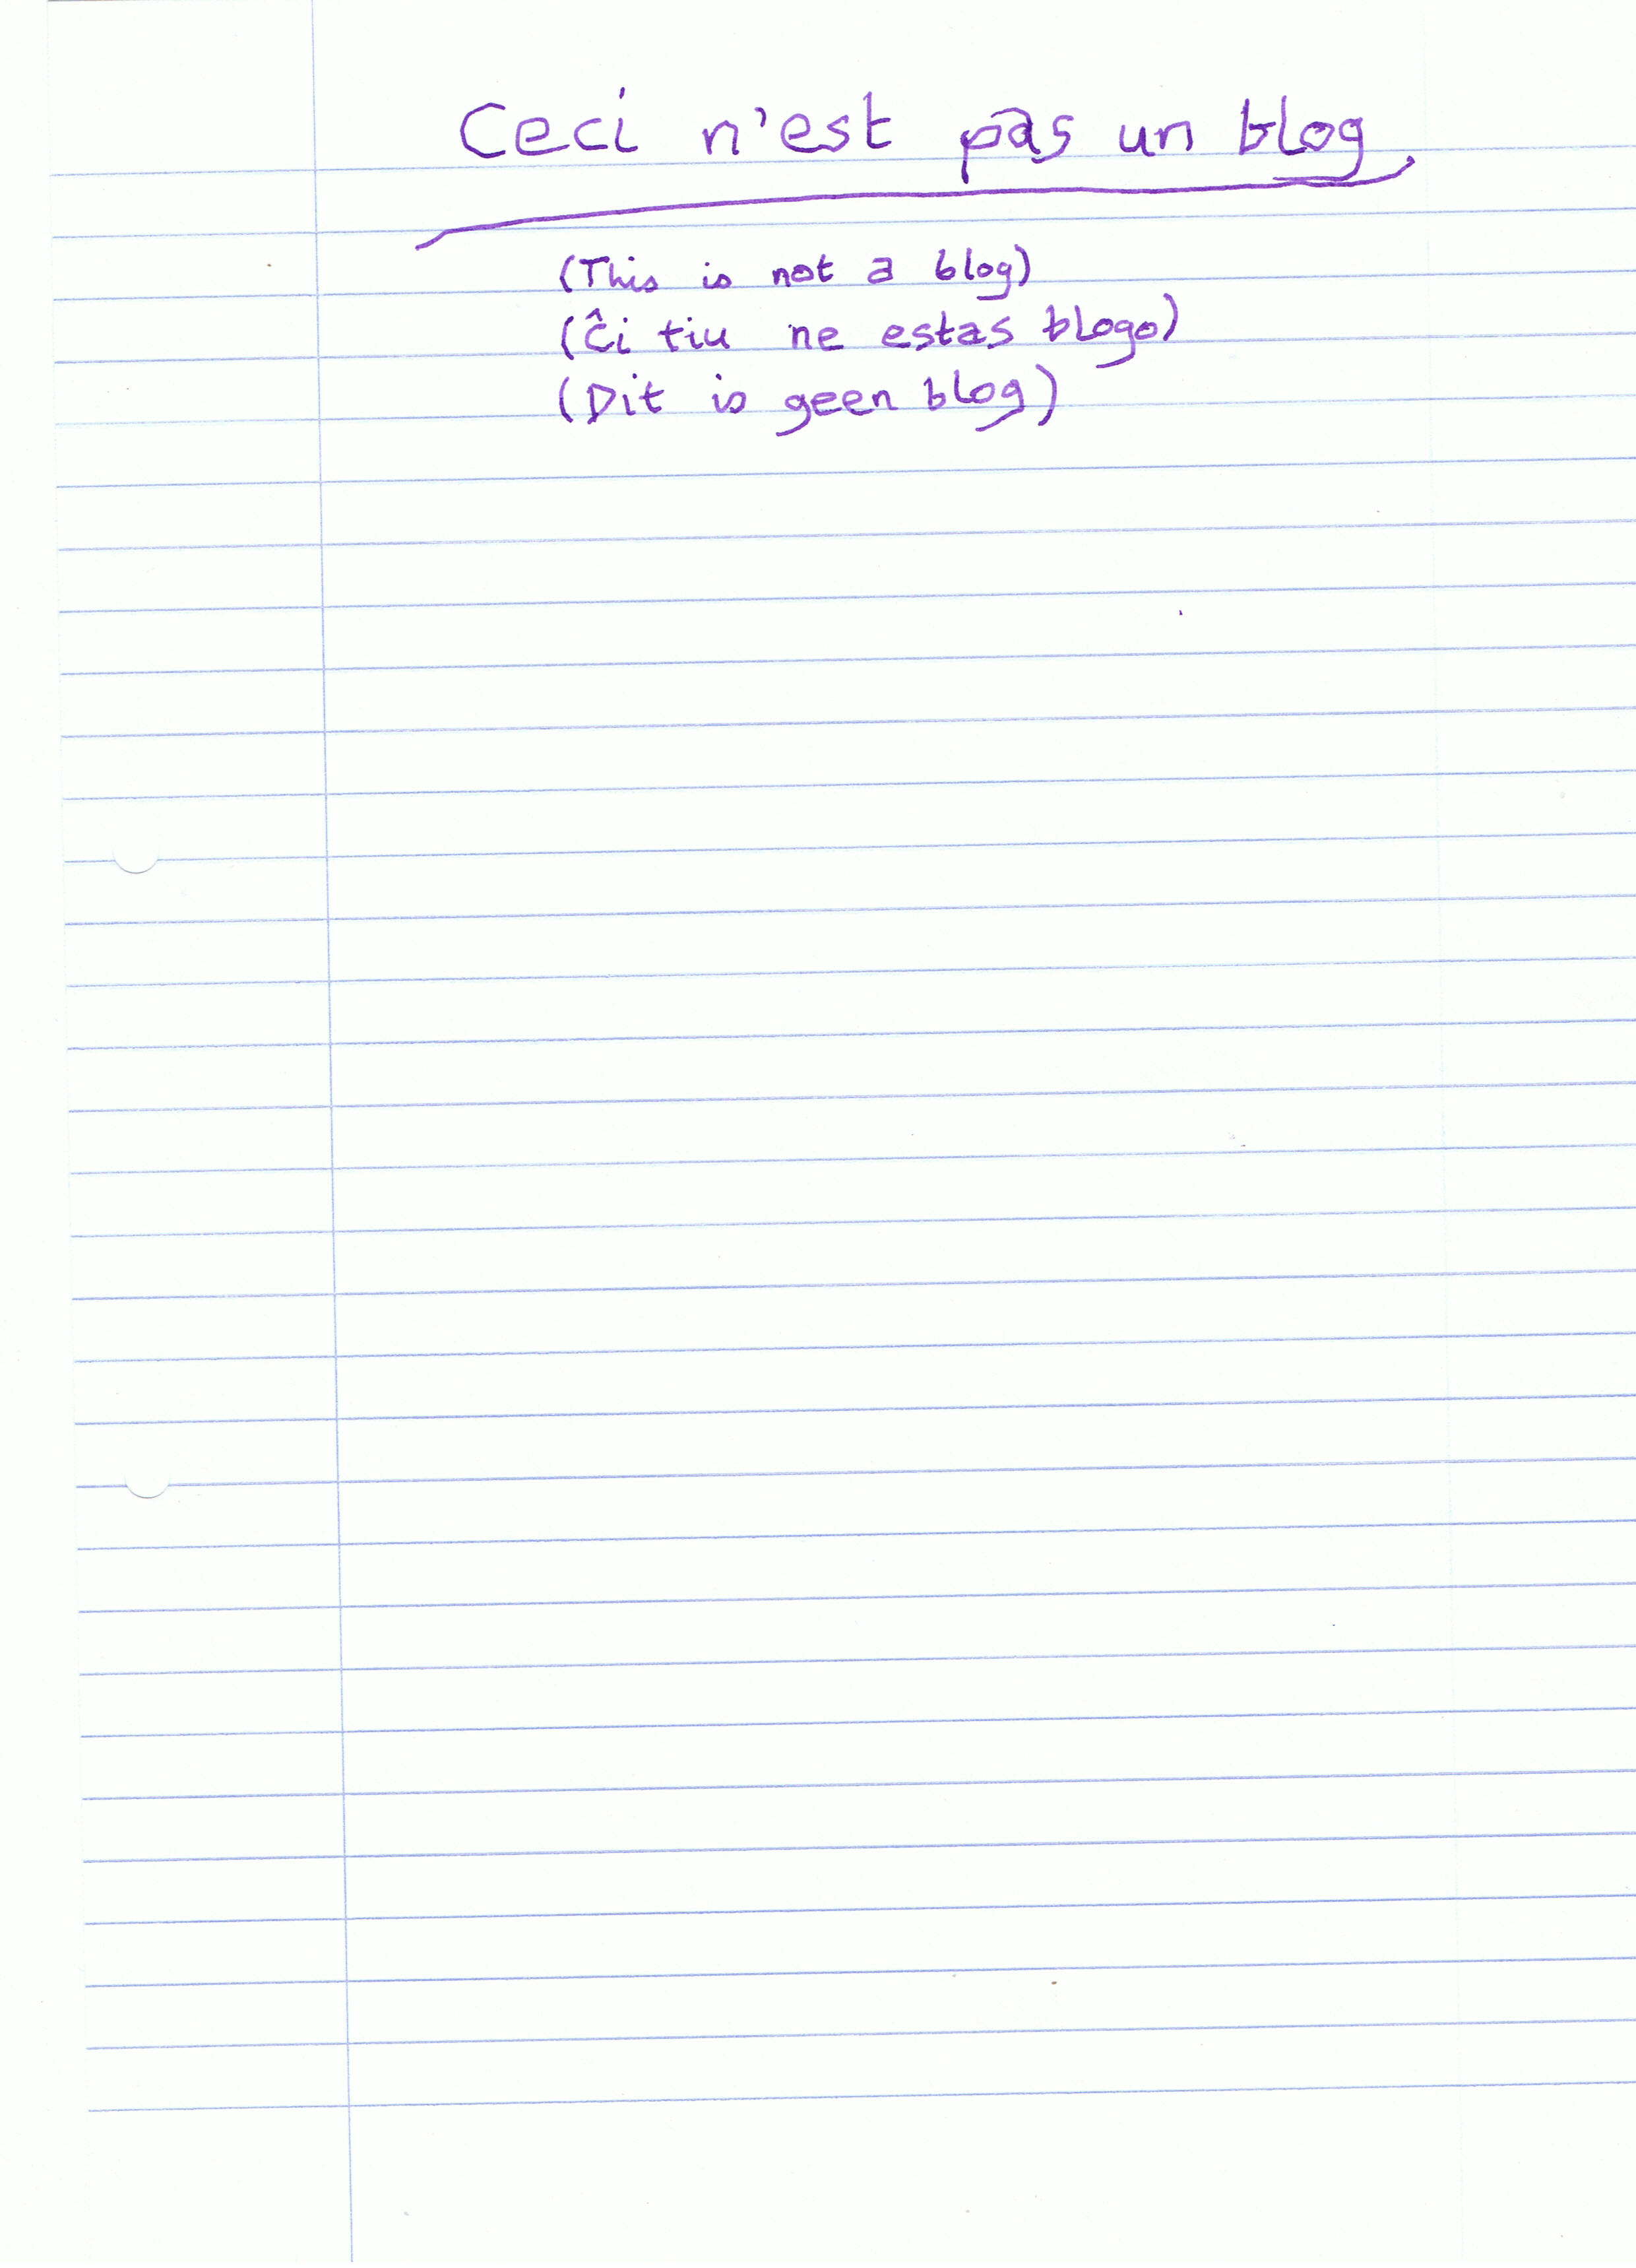 Ceci n'est pas un blog
(This is not a blog)
(Ĉi tiu ne estas blogo)
(Dit is geen blog)